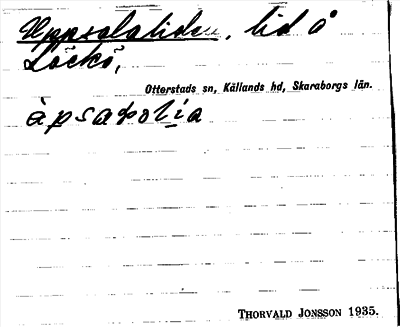 Uppsalaliden, lid å
Läckö,
Otterstads sn, Kållands hd, Skaraborgs län.
THORVALD JONSSON 1935.